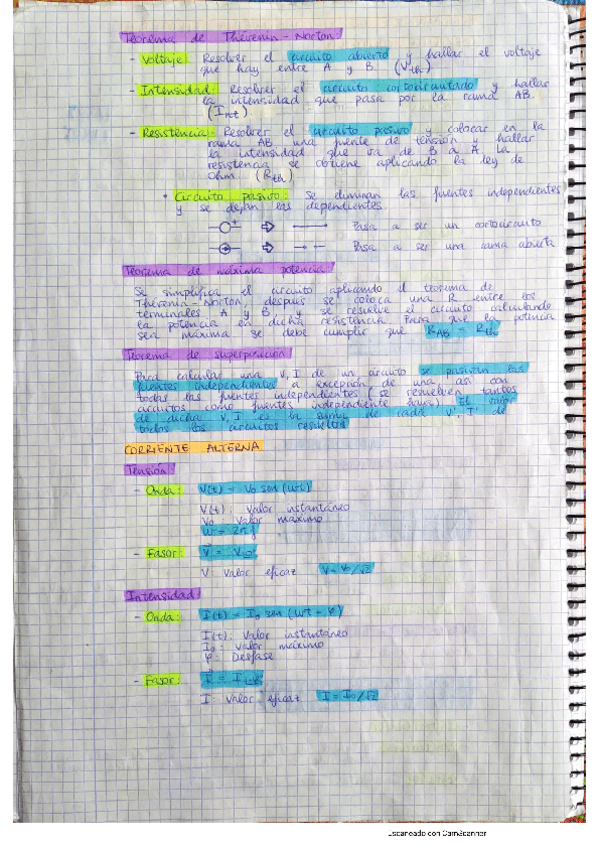 Teorema de Thévenin - Norton
- Voltaje: Resolver el circuito abierto y hallar el voltaje
que hay entre A y B. (Vth)
- Intensidad: Resolver el circuito cortocircuitado y hallar
la intensidad que pasa por la rama AB.
(Int)
- Resistencia: Resolver el circuito pasivo y colocar en la
rama AB una fuente de tensión y hallar
la intensidad que va de B a A. La
resistencia se obtiene aplicando la ley de
Ohm. (Rth)
• Circuito pasivo: Se eliminan las fuentes independientes
y se dejan las dependientes.
Pasa a ser un cortocircuito
Pasa a ser una rama abierta
Teorema de máxima potencia
Se simplifica el circuito aplicando el teorema de
Thévenin - Norton, después se coloca una R entre los
terminales A y B, y se resuelve el circuito calculando
la potencia en dicha resistencia. Para que la potencia
sea máxima se debe cumplir que RAB = Rth
Teorema de superposición
Para calcular una V, I de un circuito se pasivan las
fuentes independientes a excepción de una, así con
todas las fuentes independientes (se resuelven tantos
circuitos como fuentes independiente haya). El valor
de dicha V, I es la suma de cada V', I' de
todos los circuitos resueltos
CORRIENTE ALTERNA
Tensión
- Onda: V(t) = Vo sen (wt)
V(t): Valor instantáneo
Vo: Valor máximo
W = 2πf
- Fasor: V = V
V: Valor eficaz V = Vo/√2
Intensidad
- Onda: I(t) = Io sen (wt - φ)
I(t): Valor instantáneo
Io: Valor máximo
φ: Desfase
- Fasor: I
I: Valor eficaz I = Io/√2
Escaneado con CamScanner